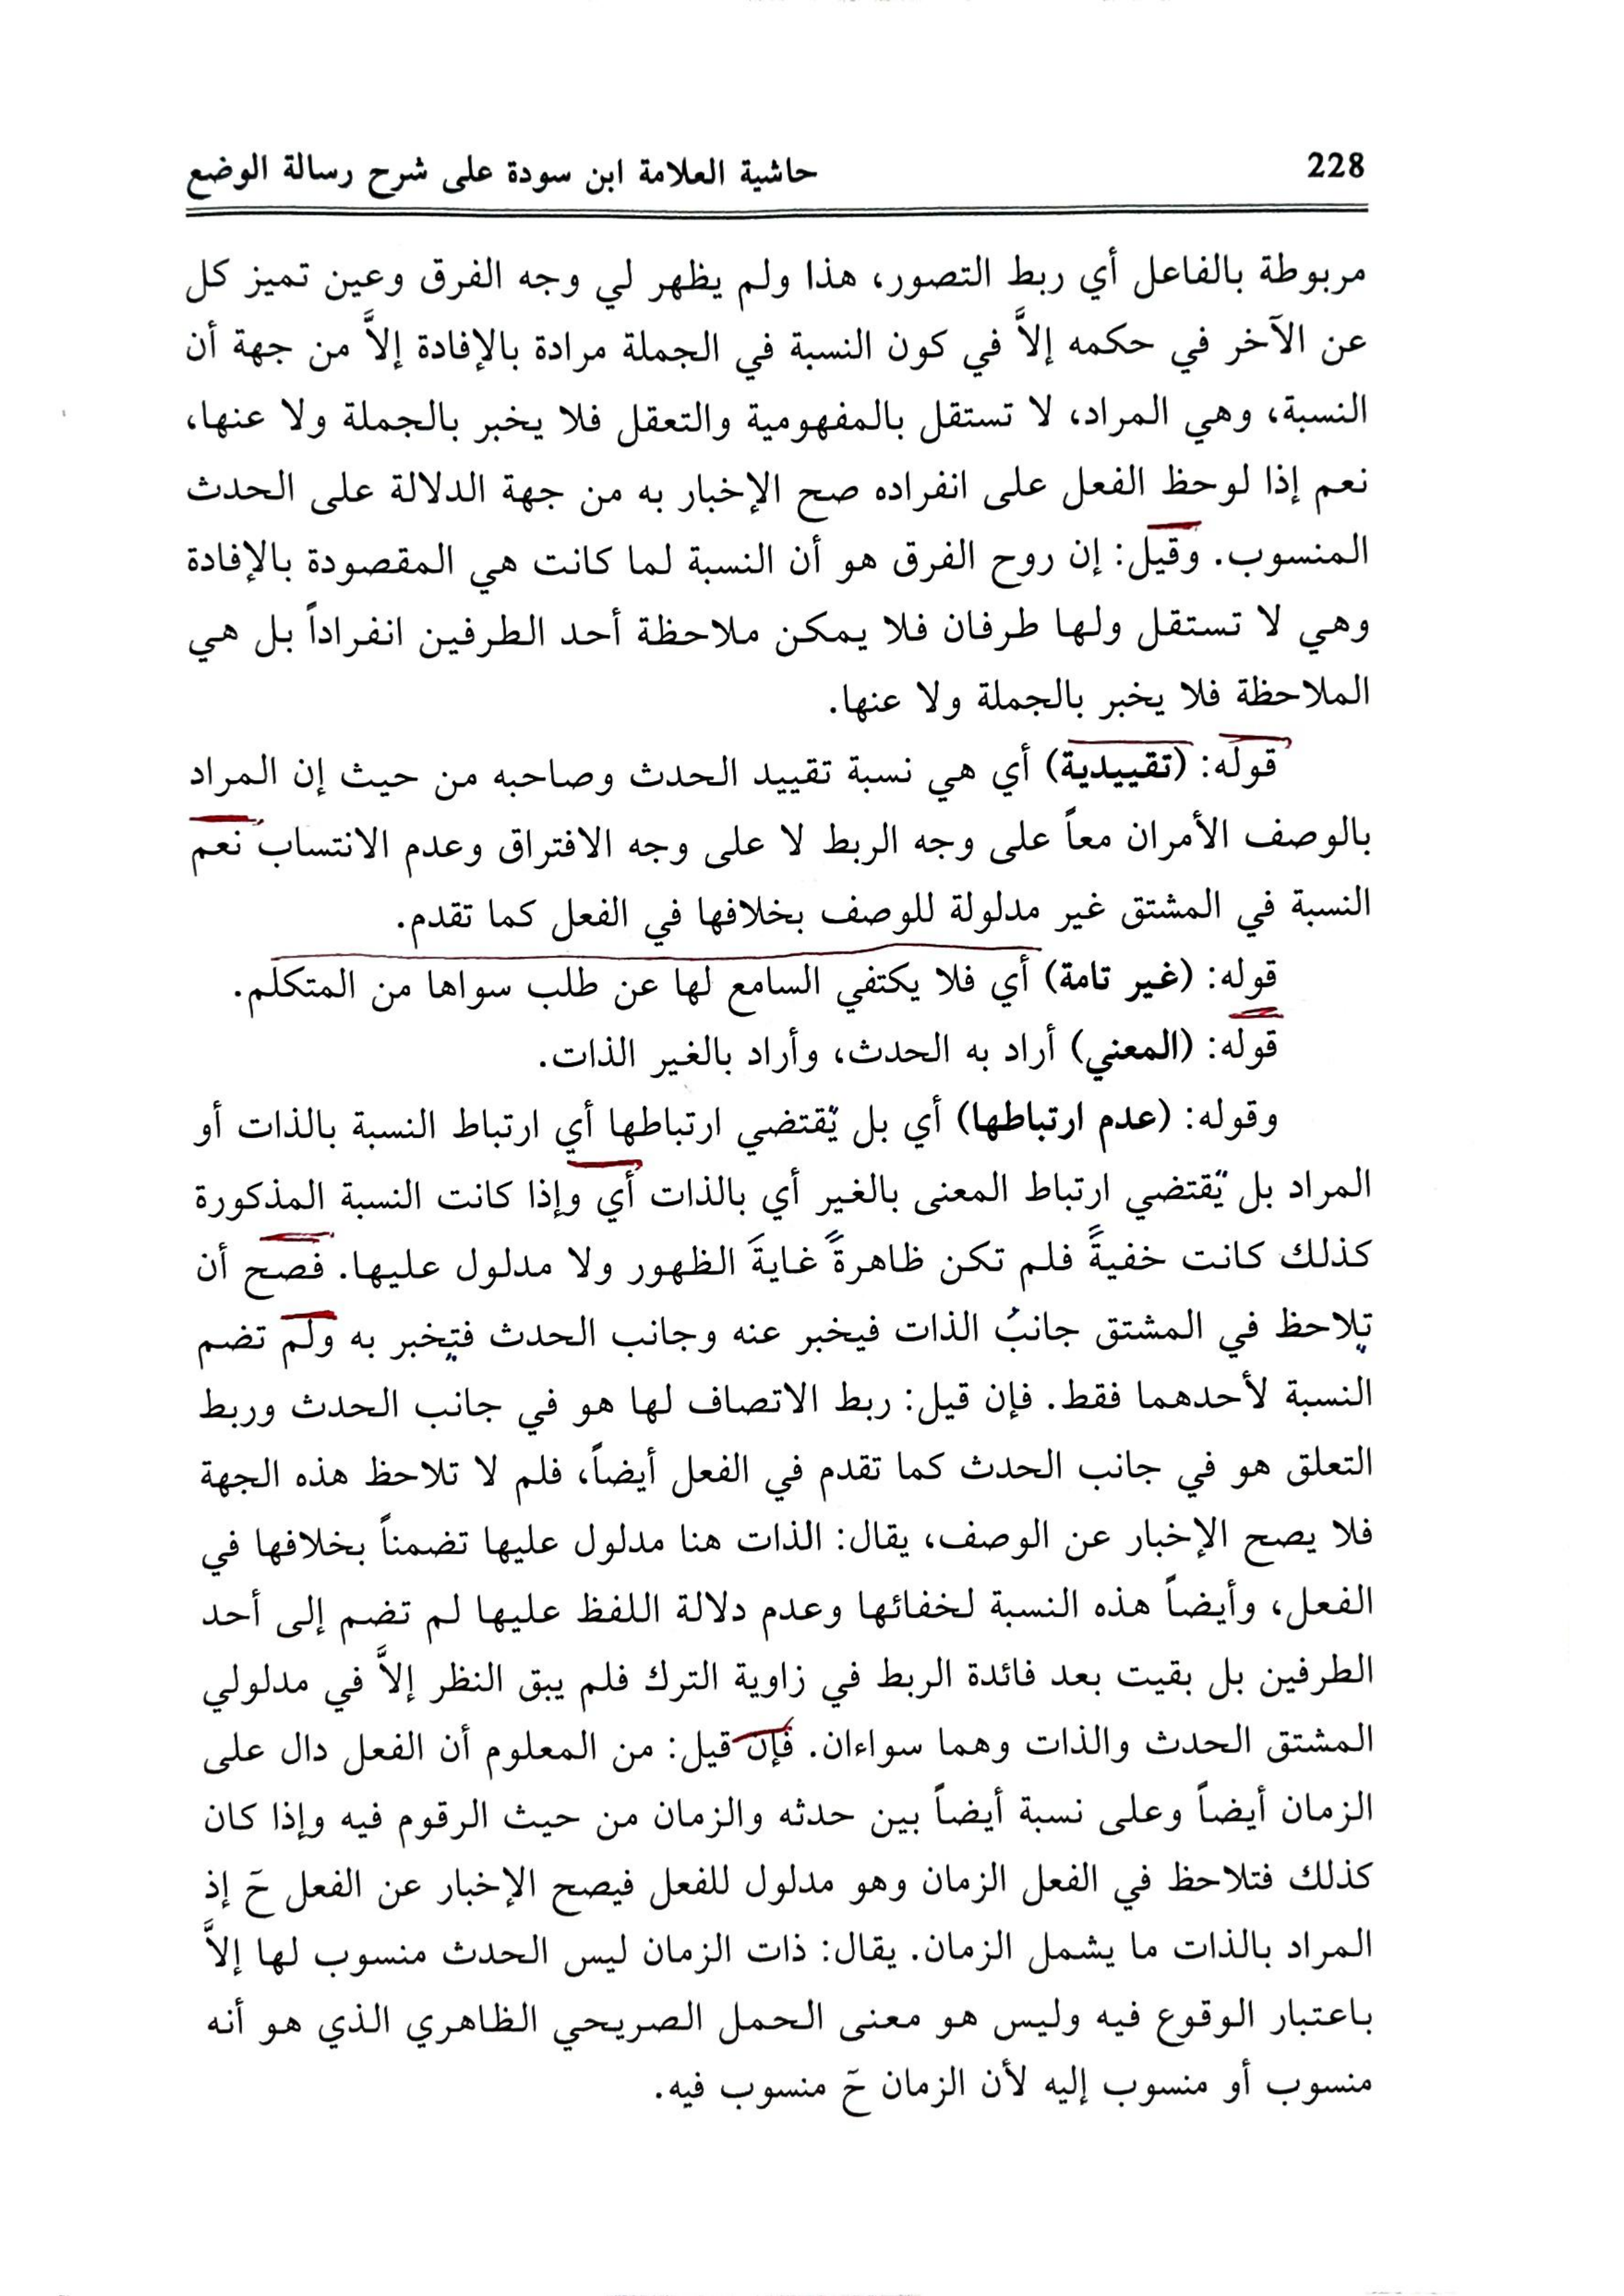 228
حاشية العلامة ابن سودة على شرح رسالة الوضع
مربوطة بالفاعل أي ربط التصور، هذا ولم يظهر لي وجه الفرق وعين تميز كل
عن الآخر في حكمه إلاَّ في كون النسبة في الجملة مرادة بالإفادة إلاَّ من جهة أن
النسبة، وهي المراد، لا تستقل بالمفهومية والتعقل فلا يخبر بالجملة ولا عنها،
نعم إذا لوحظ الفعل على انفراده صح الإخبار به من جهة الدلالة على الحدث
المنسوب. وقيل: إن روح الفرق هو أن النسبة لما كانت هي المقصودة بالإفادة
وهي لا تستقل ولها طرفان فلا يمكن ملاحظة أحد الطرفين انفراداً بل هي
الملاحظة فلا يخبر بالجملة ولا عنها.
قوله: (تقييدية) أي هي نسبة تقييد الحدث وصاحبه من حيث إن المراد
بالوصف الأمران معاً على وجه الربط لا على وجه الافتراق وعدم الانتساب نعم
النسبة في المشتق غير مدلولة للوصف بخلافها في الفعل كما تقدم.
قوله: (غير تامة) أي فلا يكتفي السامع لها عن طلب سواها من المتكلم.
قوله: (المعني) أراد به الحدث، وأراد بالغير الذات.
وقوله: (عدم ارتباطها) أي بل يقتضي ارتباطها أي ارتباط النسبة بالذات أو
المراد بل يقتضي ارتباط المعنى بالغير أي بالذات أي وإذا كانت النسبة المذكورة
كذلك كانت خفيةً فلم تكن ظاهرةً غايةَ الظهور ولا مدلول عليها. فصح أن
تلاحظ في المشتق جانبُ الذات فيخبر عنه وجانب الحدث فتخبر به ولم تضم
النسبة لأحدهما فقط. فإن قيل: ربط الاتصاف لها هو في جانب الحدث وربط
التعلق هو في جانب الحدث كما تقدم في الفعل أيضاً، فلم لا تلاحظ هذه الجهة
فلا يصح الإخبار عن الوصف، يقال: الذات هنا مدلول عليها تضمناً بخلافها في
الفعل، وأيضاً هذه النسبة لخفائها وعدم دلالة اللفظ عليها لم تضم إلى أحد
الطرفين بل بقيت بعد فائدة الربط في زاوية الترك فلم يبق النظر إلاَّ في مدلولي
المشتق الحدث والذات وهما سواءان. فإن قيل: من المعلوم أن الفعل دال على
الزمان أيضاً وعلى نسبة أيضاً بين حدثه والزمان من حيث الرقوم فيه وإذا كان
كذلك فتلاحظ في الفعل الزمان وهو مدلول للفعل فيصح الإخبار عن الفعل حَ إذ
المراد بالذات ما يشمل الزمان. يقال: ذات الزمان ليس الحدث منسوب لها إلاَّ
باعتبار الوقوع فيه وليس هو معنى الحمل الصريحي الظاهري الذي هو أنه
منسوب أو منسوب إليه لأن الزمان حَ منسوب فيه.